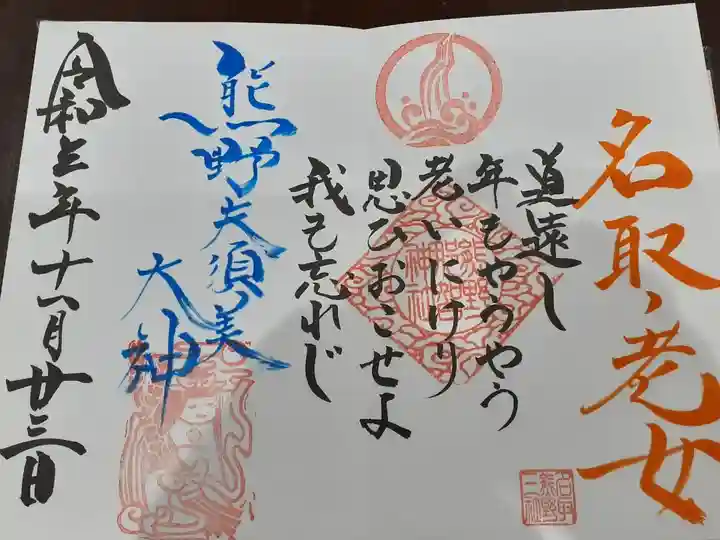 名取ノ老女
道遠し
年もやうやう
老いにけり
思ひおこせよ
我も忘れじ
熊野夫須美
大神
令和五年十一月廿三日
熊野那智神社
名取熊野三社